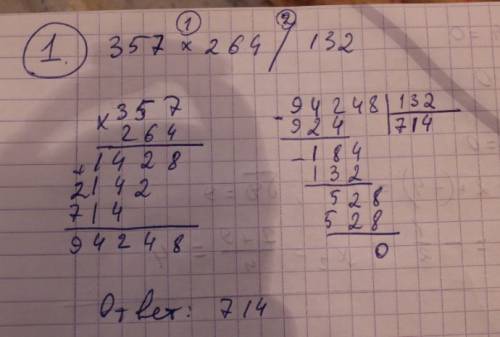 ① ②
1. 357 × 264 / 132
× 357
264
+ 1428
2142
714
94248
- 94248 | 132
924 | 714
- 184
132
528
528
0
Ответ: 714